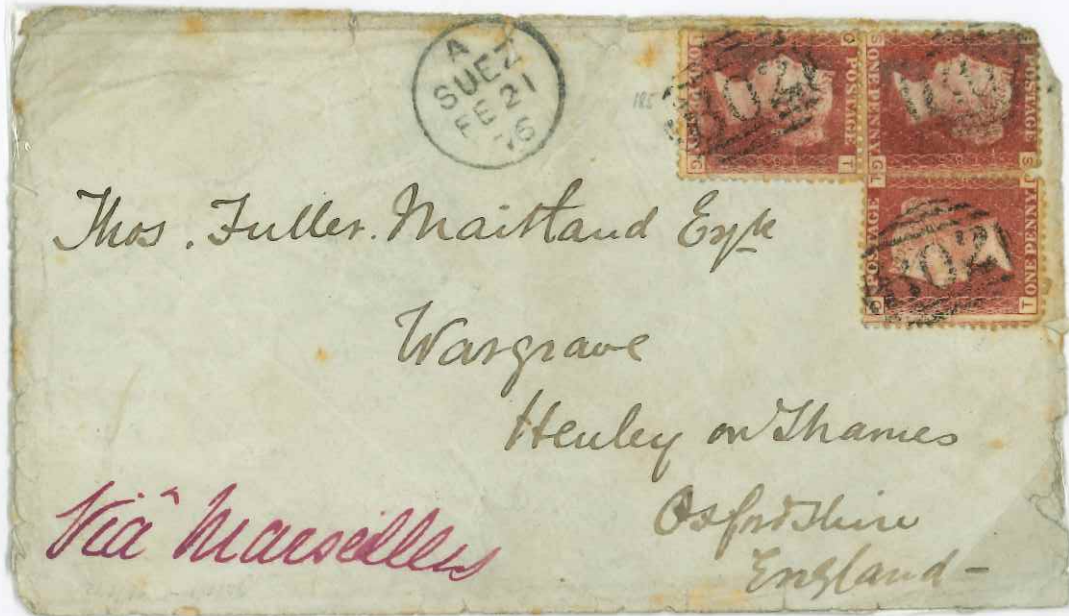 A
SUEZ
FE 21
76
185
POSTAGE
ONE PENNY
POSTAGE
ONE PENNY
POSTAGE
ONE PENNY
B02
B02
Thos. Fuller. Maitland Esqre
Wargrave
Henley on Thames
Oxfordshire
England -
Viâ Marseilles